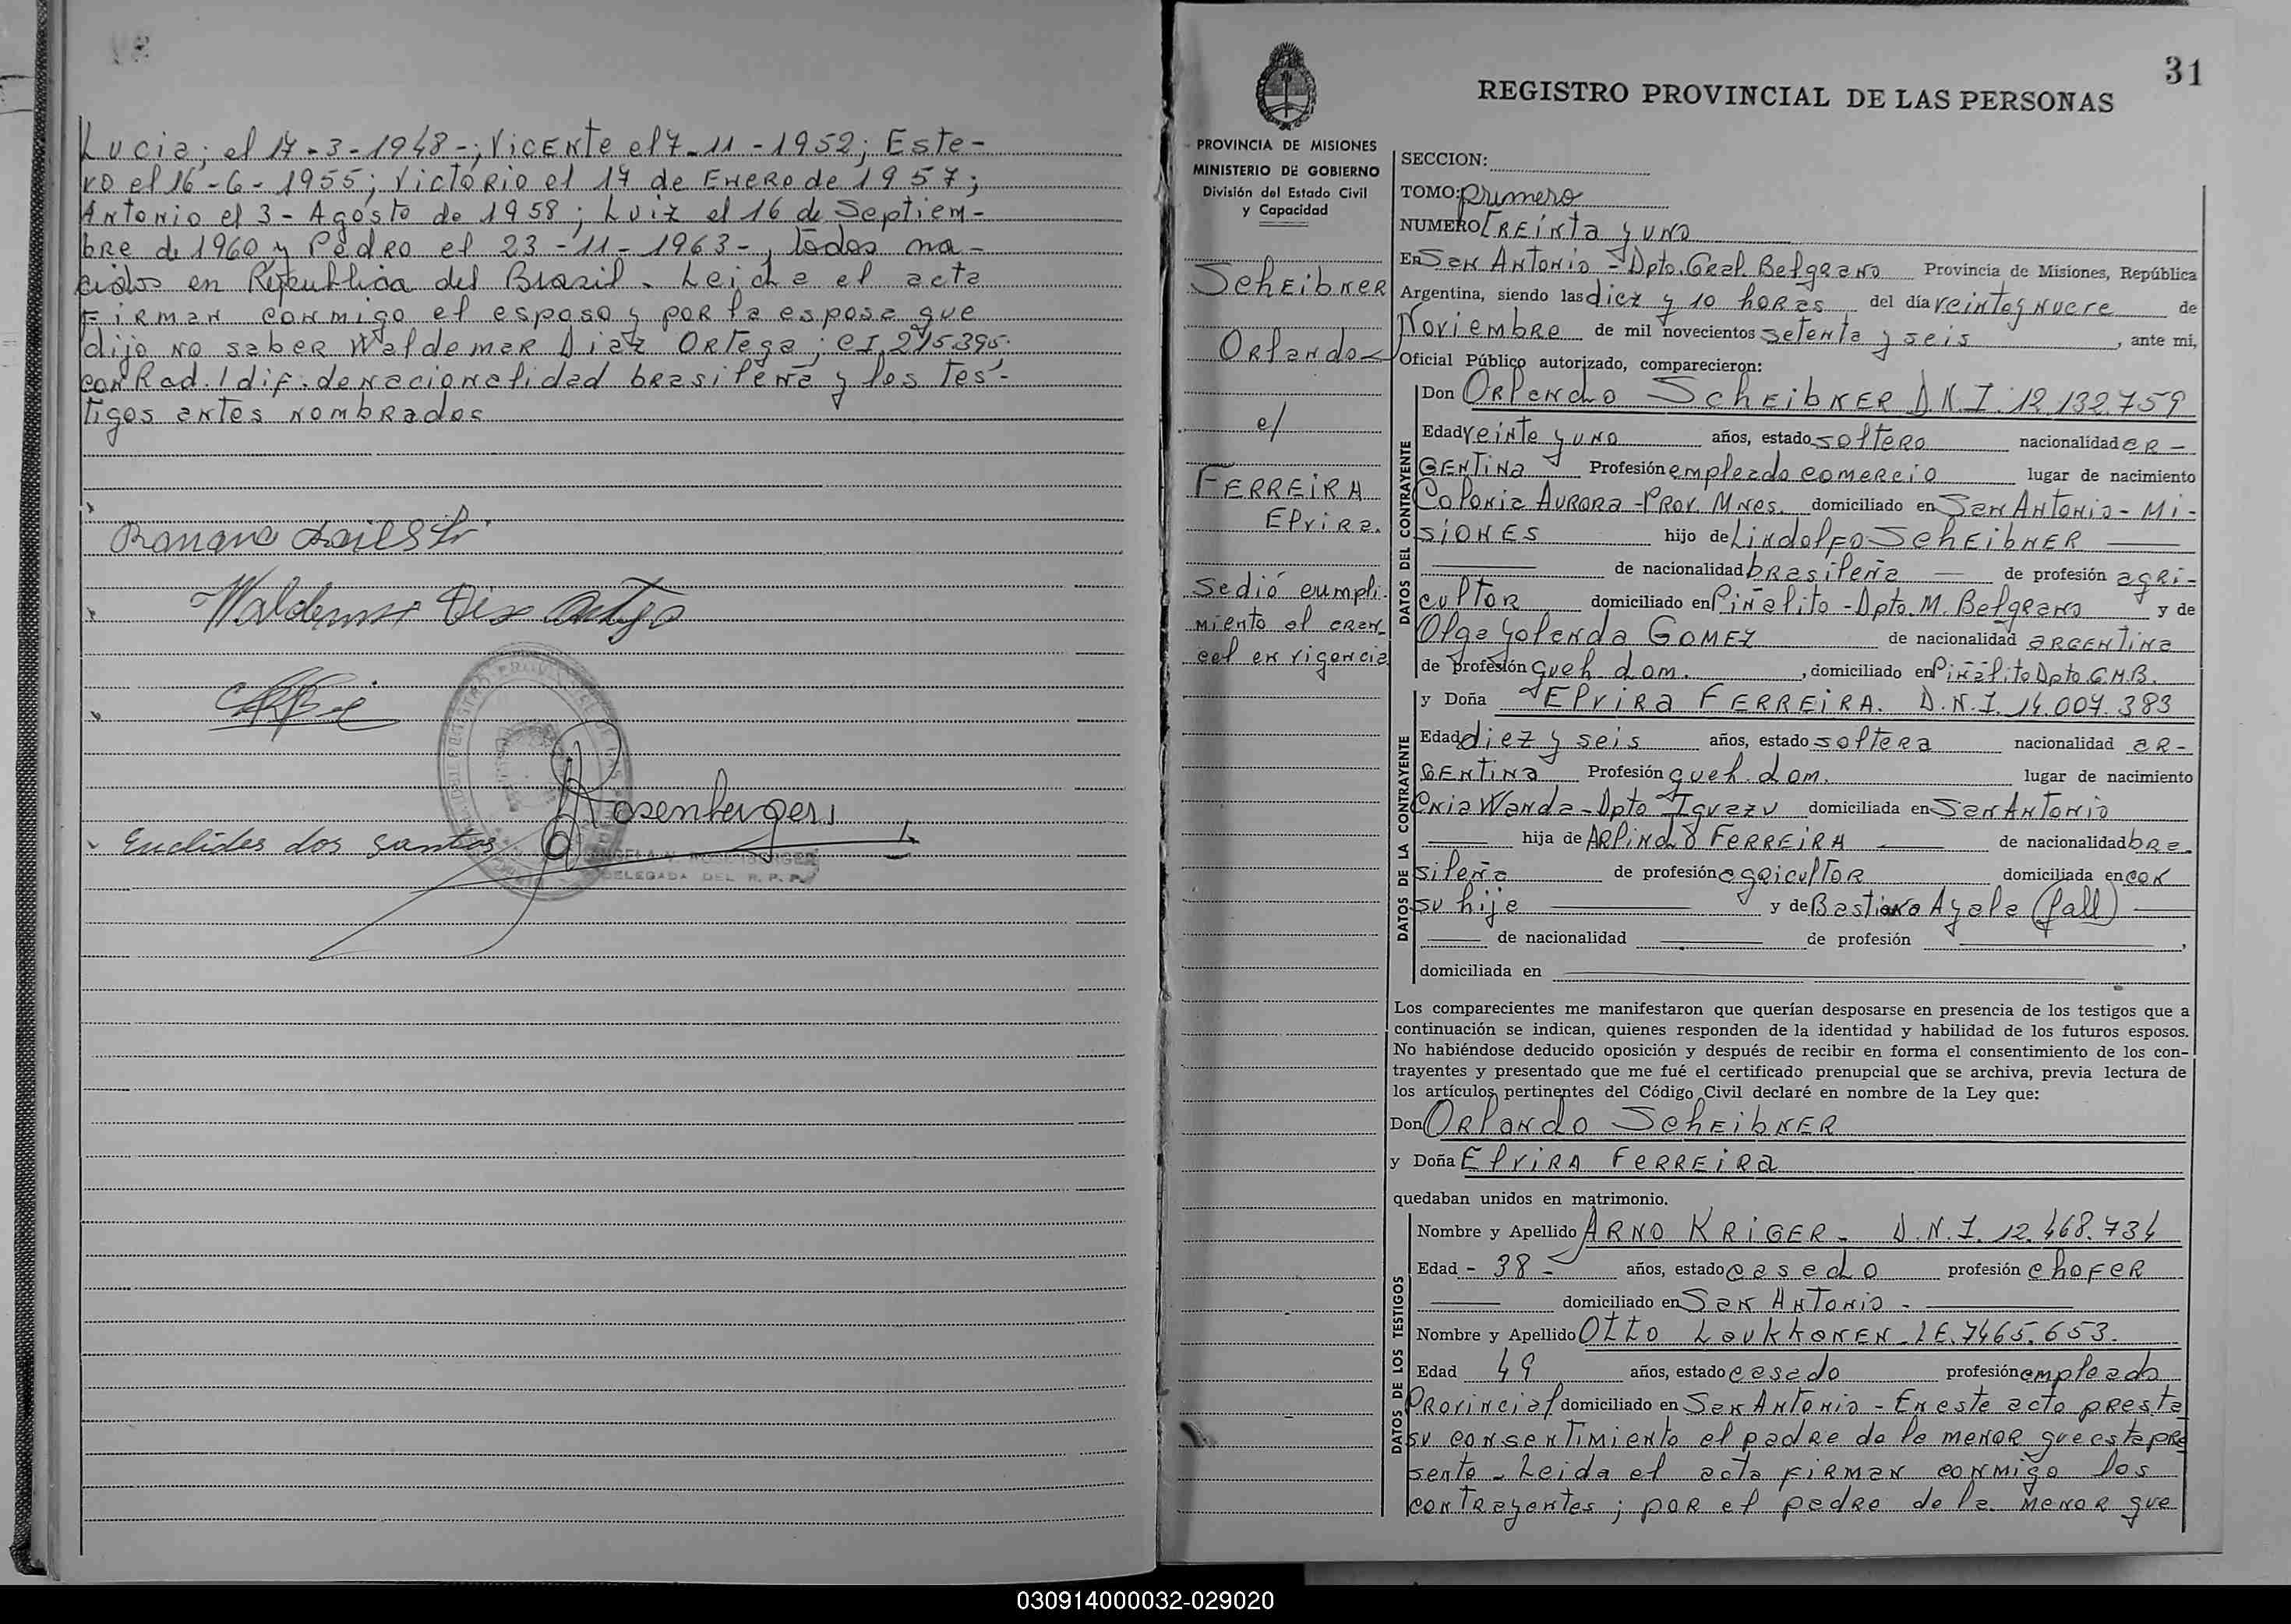 Lucia; el 17-3-1948-; Vicente el 7-11-1952; Este-
vo el 16-6-1955; Victorio el 17 de Enero de 1957;
Antonio el 3-Agosto de 1958; Luiz el 16 de Septiem-
bre de 1960 y Pedro el 23-11-1963-, todos na-
cidos en Republica del Brasil. Leida el acta
firman conmigo el esposo y por la esposa que
dijo no saber Waldemar Diaz Ortega; CI. 215.395.
con Rad./ dif. de nacionalidad brasileña y los tes-
tigos antes nombrados
Waldemar
Rosenberger
Euclides dos Santos
ANGELA N. ROSENBERGER
DELEGADA DEL R. P. P.
31
REGISTRO PROVINCIAL DE LAS PERSONAS
PROVINCIA DE MISIONES
MINISTERIO DE GOBIERNO
División del Estado Civil
y Capacidad
Scheibner
Orlando
c/
Ferreira
Elvira.
Se dió cumpli-
miento al aran-
cel en vigencia
SECCION:
TOMO: primero
NUMERO treinta y uno
En San Antonio - Dpto. Gral. Belgrano Provincia de Misiones, República
Argentina, siendo las diez y 10 horas del día veinte y nueve de
Noviembre de mil novecientos setenta y seis, ante mi,
Oficial Público autorizado, comparecieron:
DATOS DEL CONTRAYENTE
Don Orlando Scheibner D.N.I. 12.132.759
Edad veinte y uno años, estado soltero nacionalidad ar-
gentina Profesión empleado comercio lugar de nacimiento
Colonia Aurora - Prov. Mnes. domiciliado en San Antonio - Mi-
siones hijo de Lindolfo Scheibner
de nacionalidad brasileña de profesión agri-
cultor domiciliado en Piñalito - Dpto. M. Belgrano y de
Olga Yolanda Gomez de nacionalidad argentina
de profesión queh. dom., domiciliado en Piñalito Dpto G.M.B.
DATOS DE LA CONTRAYENTE
y Doña Elvira Ferreira. D.N.I. 14.007.383
Edad diez y seis años, estado soltera nacionalidad ar-
gentina Profesión queh. dom. lugar de nacimiento
Cnia Wanda - Dpto Iguazu domiciliada en San Antonio
hija de Arlindo Ferreira de nacionalidad bra-
sileña de profesión agricultor domiciliada en con
su hija y de Bastiana Ayala (fall)
de nacionalidad de profesión ,
domiciliada en
Los comparecientes me manifestaron que querían desposarse en presencia de los testigos que a
continuación se indican, quienes responden de la identidad y habilidad de los futuros esposos.
No habiéndose deducido oposición y después de recibir en forma el consentimiento de los con-
trayentes y presentado que me fué el certificado prenupcial que se archiva, previa lectura de
los artículos pertinentes del Código Civil declaré en nombre de la Ley que:
Don Orlando Scheibner
y Doña Elvira Ferreira
quedaban unidos en matrimonio.
DATOS DE LOS TESTIGOS
Nombre y Apellido Arno Kriger - D.N.I. 12.468.734
Edad - 38 - años, estado casado profesión chofer
domiciliado en San Antonio -
Nombre y Apellido Otto Laukkonen - LE. 7465.653.
Edad 49 años, estado casado profesión empleado
Provincial domiciliado en San Antonio - En este acto presta
su consentimiento el padre de la menor que esta pre
sente - Leida el acta firman conmigo los
contrayentes; por el padre de la menor que
030914000032-029020